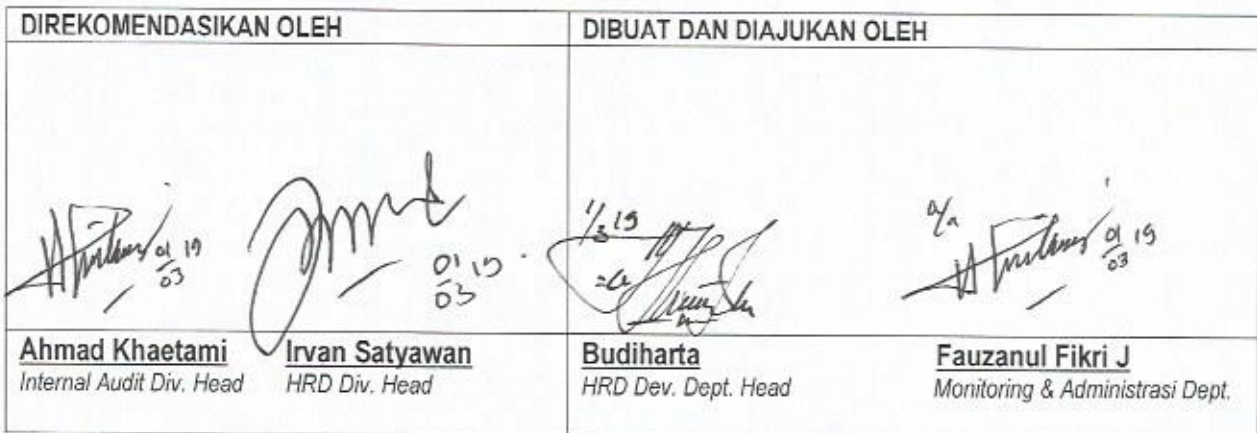 DIREKOMENDASIKAN OLEH
DIBUAT DAN DIAJUKAN OLEH
01/03 19
01/03 19
1/3 19
a/n
01/03 19
Ahmad Khaetami
Internal Audit Div. Head
Irvan Satyawan
HRD Div. Head
Budiharta
HRD Dev. Dept. Head
Fauzanul Fikri J
Monitoring & Administrasi Dept.